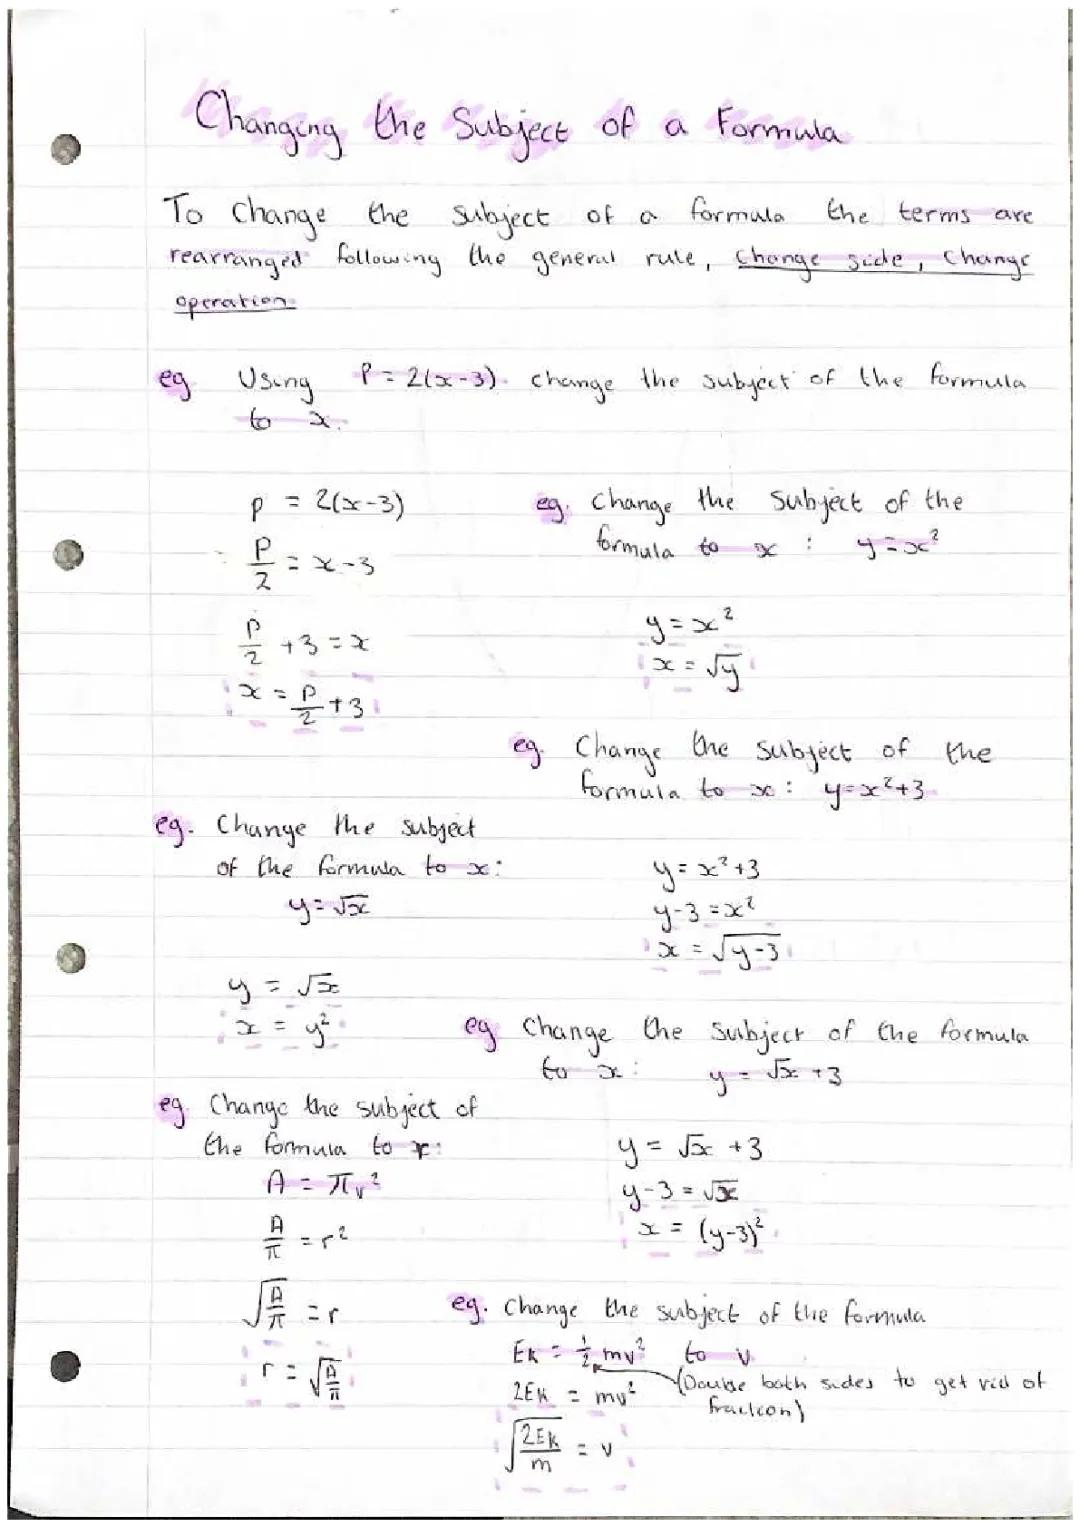 Changing the Subject of a Formula
To change the subject of a formula the terms are
rearranged following the general rule, change side, change
operation.
eg Using P = 2(x-3). change the subject of the formula
to x.
p = 2(x-3)
P/2 = x-3
P/2 +3 = x
x = P/2 +3
eg. Change the subject of the
formula to x : y = x²
y = x²
x = √y
eg. Change the subject of the
formula to x: y=x²+3
y = x²+3
y-3 = x²
x = √(y-3)
eg. Change the subject
of the formula to x:
y=√x
y = √x
x = y²
eg Change the subject of the formula
to x: y = √x +3
y = √x +3
y-3 = √x
x = (y-3)²
eg. Change the subject of
the formula to r:
A = πr²
A/π = r²
√(A/π) = r
r = √(A/π)
eg. Change the subject of the formula
Ek = ½ mv² to v.
(Double both sides to get rid of
fraction)
2Ek = mv²
√(2Ek/m) = v